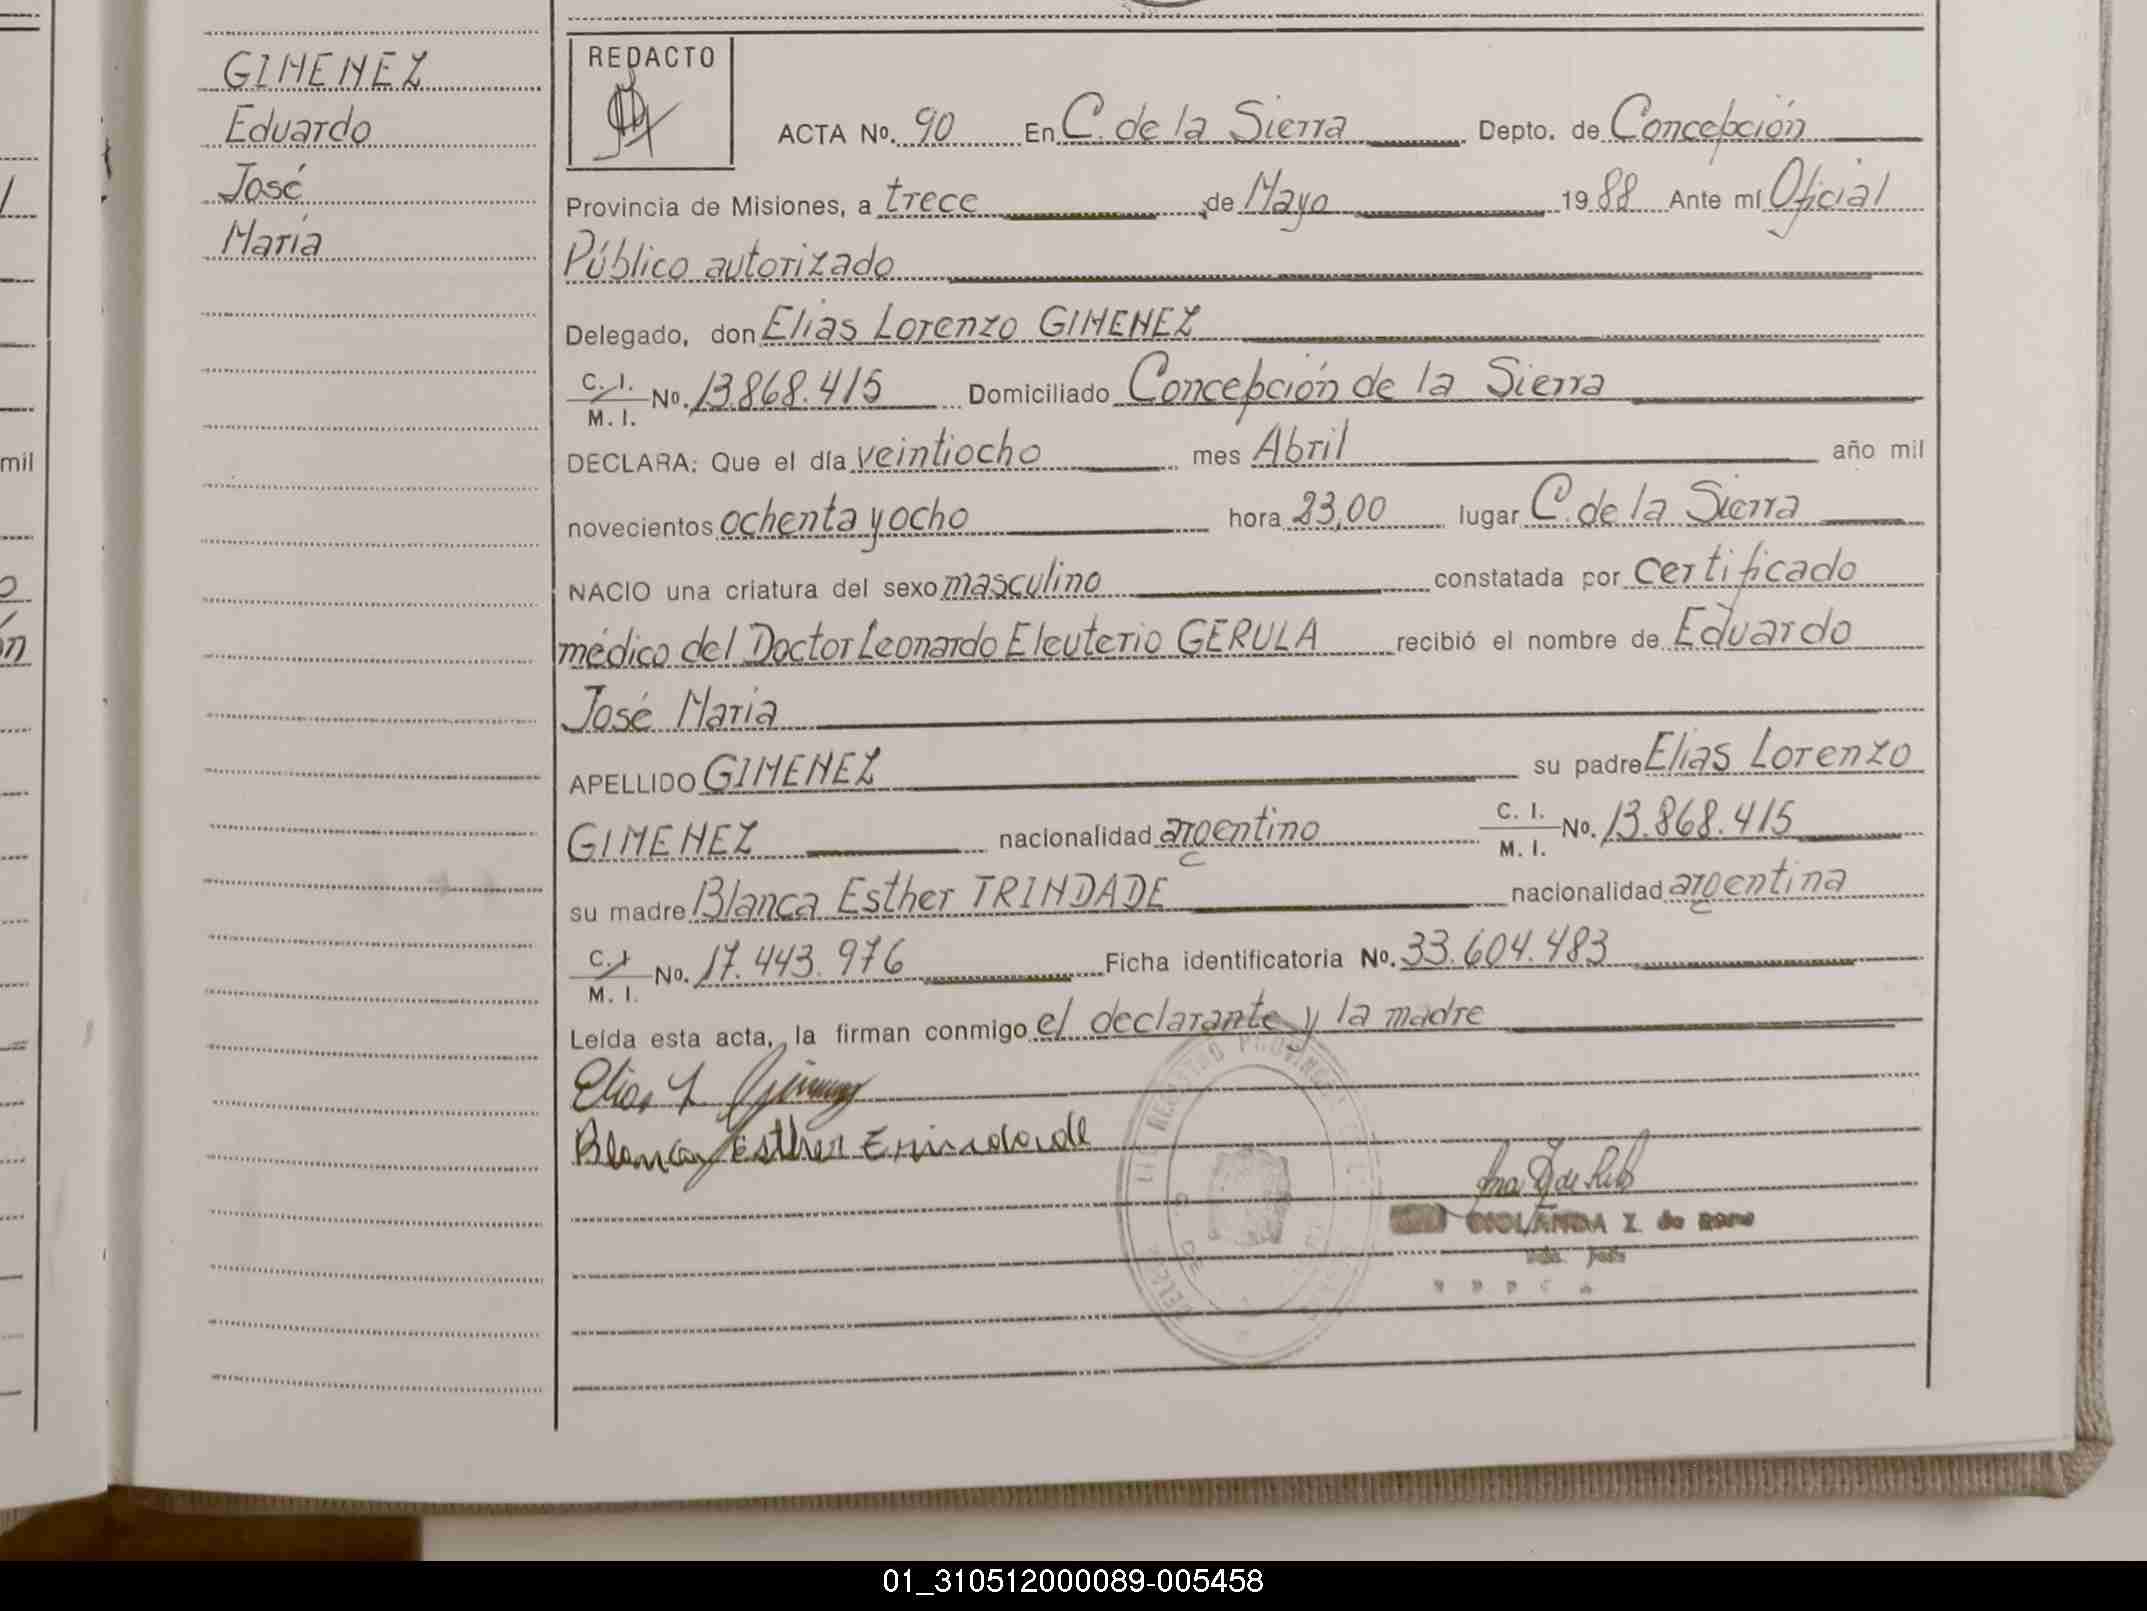 GIMENEZ
Eduardo
José
María
REDACTO
ACTA No. 90 En C. de la Sierra Depto. de Concepción
Provincia de Misiones, a trece de Mayo 1988 Ante mí Oficial
Público autorizado
Delegado, don Elias Lorenzo GIMENEZ
C. I. M. I. No. 13.868.415 Domiciliado Concepción de la Sierra
DECLARA: Que el día veintiocho mes Abril año mil
novecientos ochenta y ocho hora 23,00 lugar C. de la Sierra
NACIO una criatura del sexo masculino constatada por certificado
médico del Doctor Leonardo Eleuterio GERULA recibió el nombre de Eduardo
José María
APELLIDO GIMENEZ su padre Elias Lorenzo
GIMENEZ nacionalidad argentino C. I. M. I. No. 13.868.415
su madre Blanca Esther TRINDADE nacionalidad argentina
C. I. M. I. No. 17.443.976 Ficha identificatoria No. 33.604.483
Leída esta acta, la firman conmigo el declarante y la madre
Elias L
Blanca Esther
mil
01_310512000089-005458